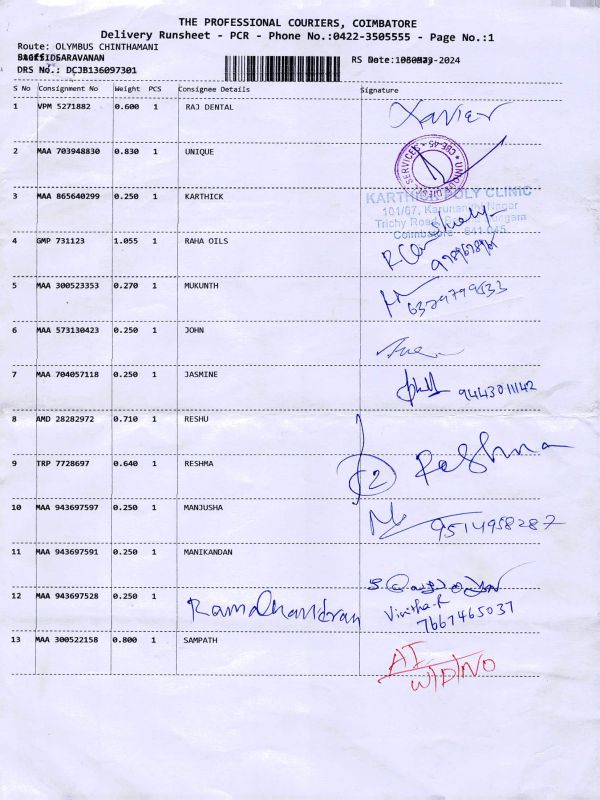 THE PROFESSIONAL COURIERS, COIMBATORE
Delivery Runsheet - PCR - Phone No.:0422-3505555 - Page No.:1
Route: OLYMBUS CHINTHAMANI
SARAVANAN
DRS No.: DCJB136097301
S No Consignment No Weight PCS Consignee Details Signature
1 VPM 5271882 0.600 1 RAJ DENTAL Xavier
2 MAA 703948830 0.830 1 UNIQUE
UNIQUE DIESEL SERVICES CBE-45
3 MAA 865640299 0.250 1 KARTHICK
KARTHICK POLY CLINIC
101/67, Karunanidhi Nagar
Trichy Road
Coimbatore - 641 045
4 GMP 731123 1.055 1 RAHA OILS
5 MAA 300523353 0.270 1 MUKUNTH
6 MAA 573130423 0.250 1 JOHN
7 MAA 704057118 0.250 1 JASMINE 9443011142
8 AMD 28282972 0.710 1 RESHU
9 TRP 7728697 0.640 1 RESHMA 2 Reshma
10 MAA 943697597 0.250 1 MANJUSHA 9514958287
11 MAA 943697591 0.250 1 MANIKANDAN
12 MAA 943697528 0.250 1 Ramachandran Vinitha.R
7667465037
13 MAA 300522158 0.800 1 SAMPATH AI
W/D/NO